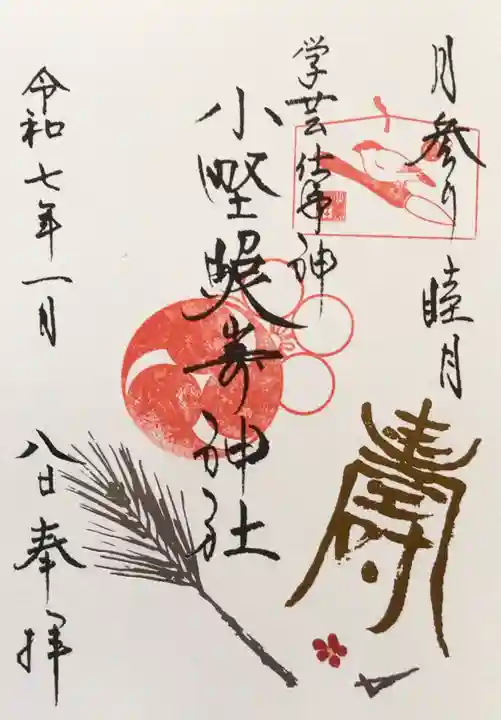 月参り 睦月
学芸仕事神
小野照崎神社
令和七年一月
八日奉拝
寿